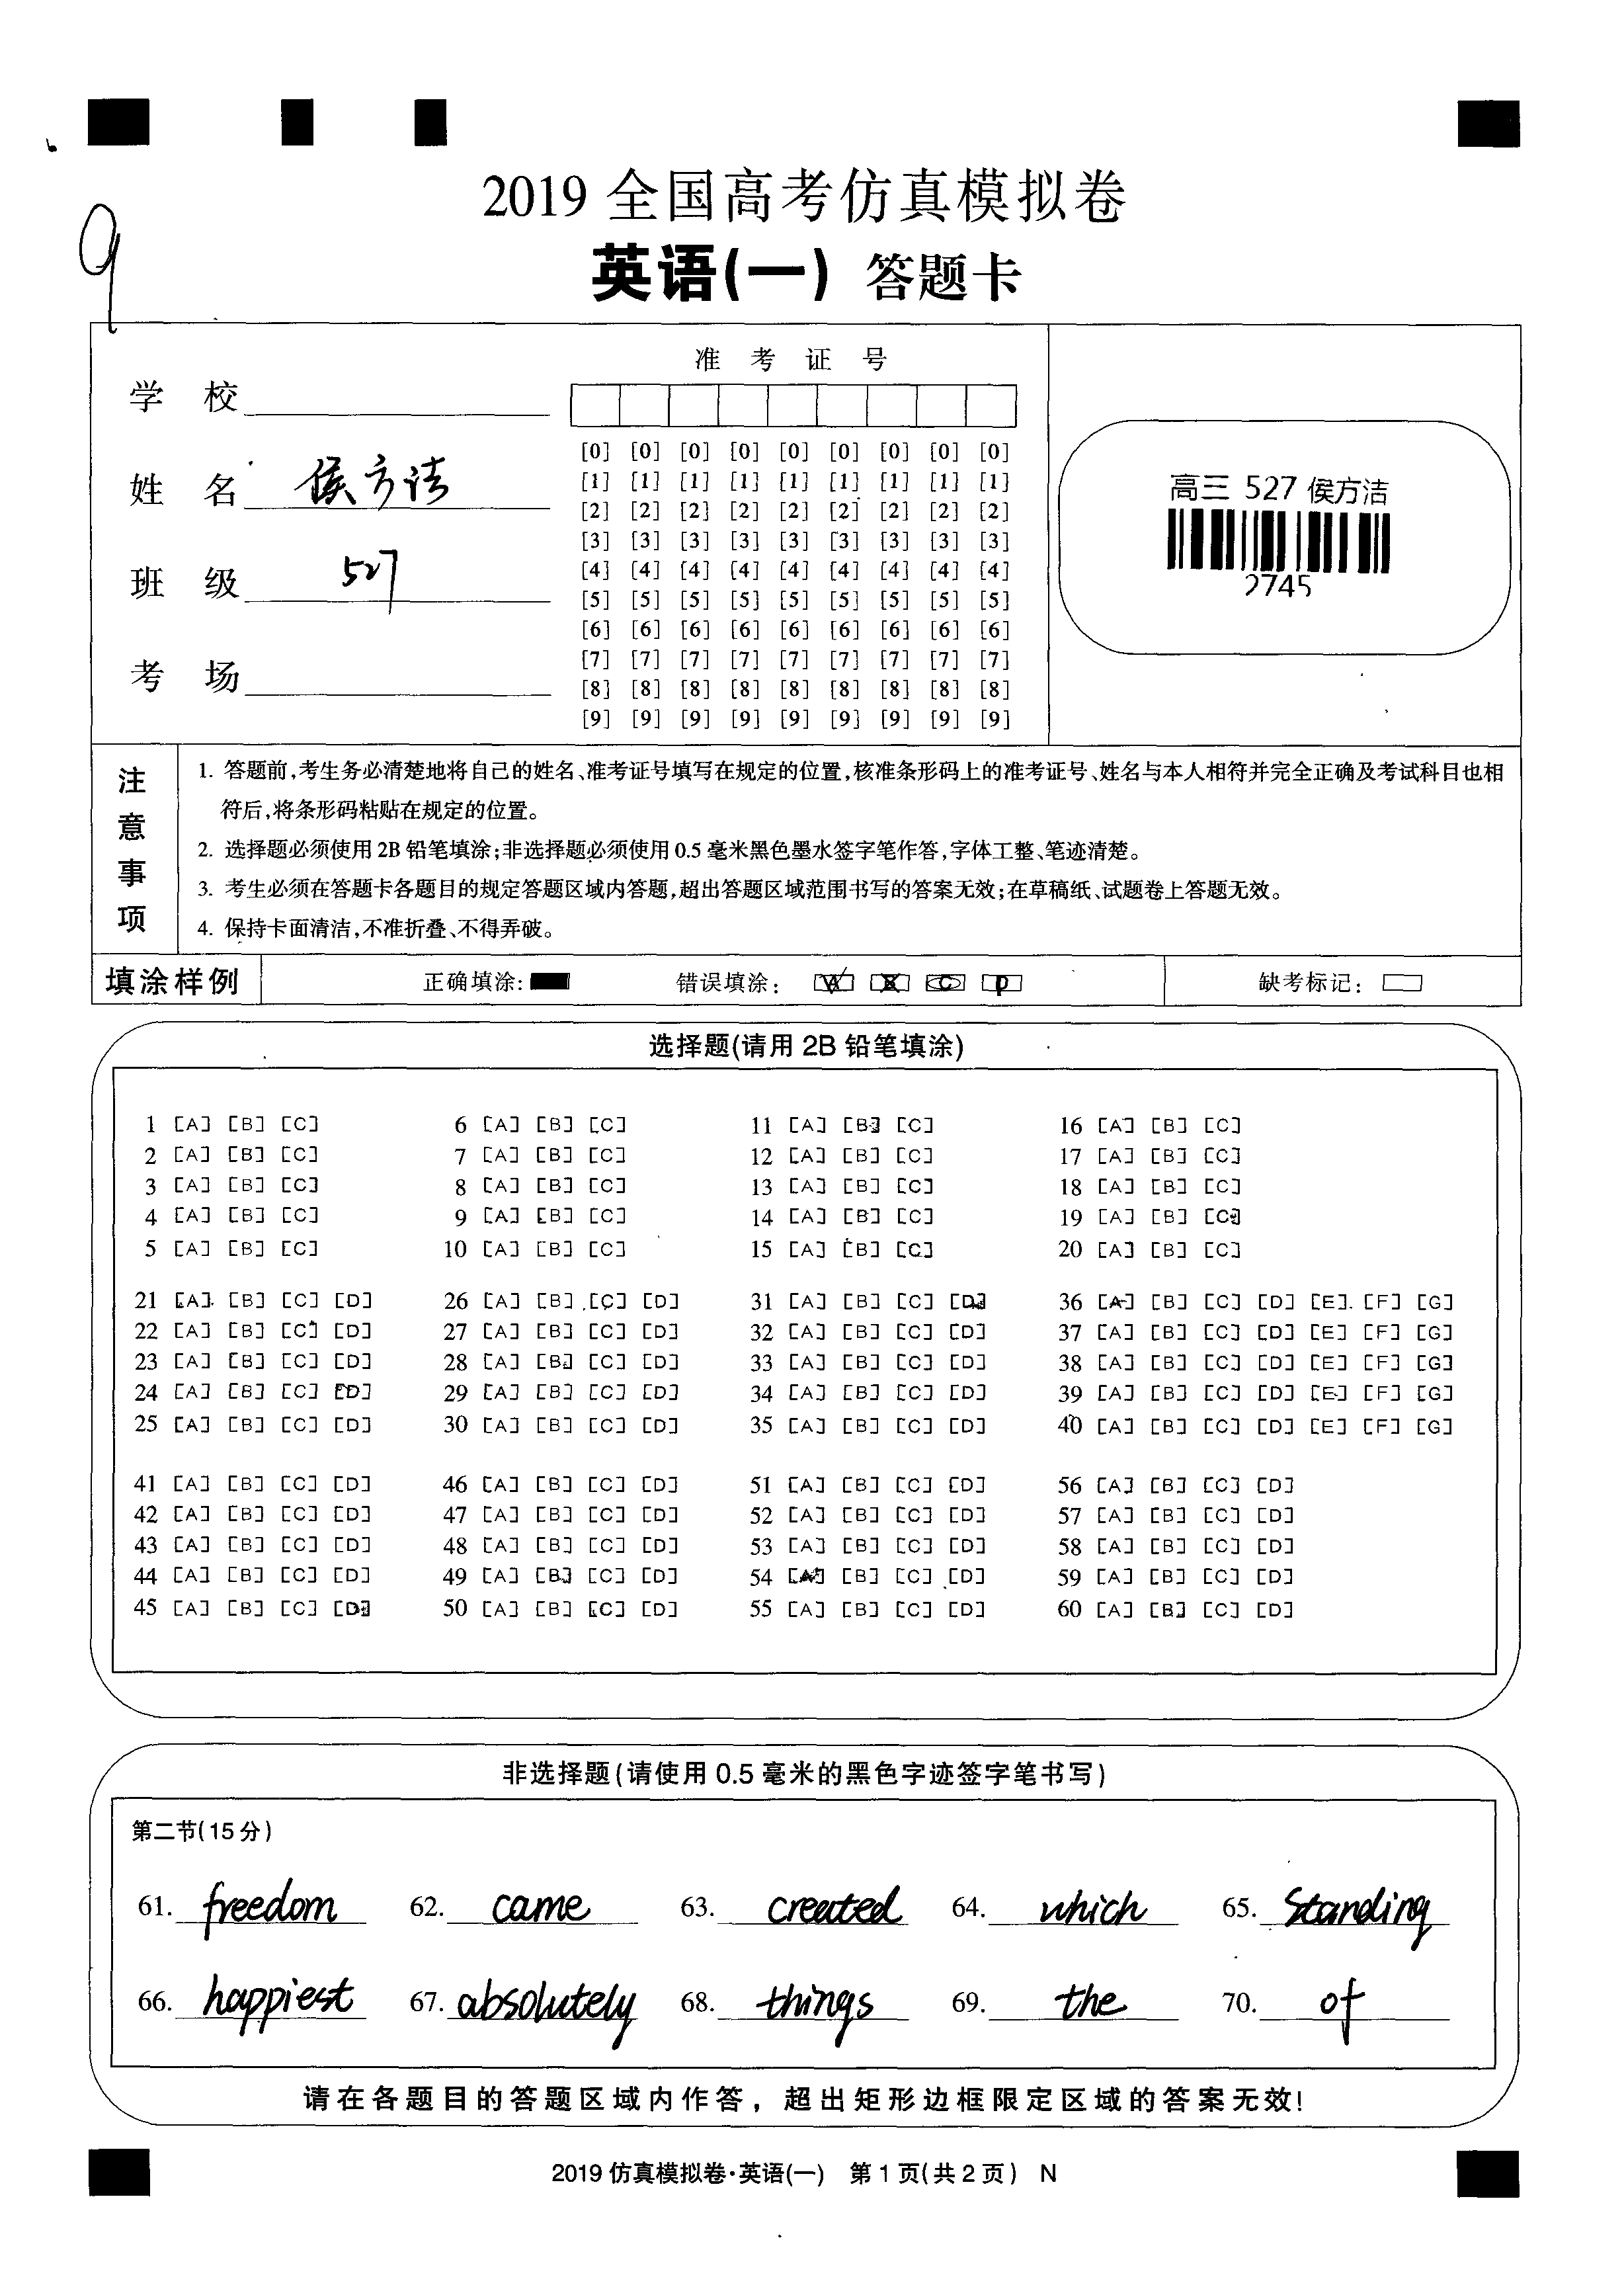 9
2019 全国高考仿真模拟卷
英语(一) 答题卡
准 考 证 号
学 校
姓 名 侯方洁
班 级 527
考 场
[0] [0] [0] [0] [0] [0] [0] [0] [0]
[1] [1] [1] [1] [1] [1] [1] [1] [1]
[2] [2] [2] [2] [2] [2] [2] [2] [2]
[3] [3] [3] [3] [3] [3] [3] [3] [3]
[4] [4] [4] [4] [4] [4] [4] [4] [4]
[5] [5] [5] [5] [5] [5] [5] [5] [5]
[6] [6] [6] [6] [6] [6] [6] [6] [6]
[7] [7] [7] [7] [7] [7] [7] [7] [7]
[8] [8] [8] [8] [8] [8] [8] [8] [8]
[9] [9] [9] [9] [9] [9] [9] [9] [9]
高三 527 侯方洁
2745
注意事项
1. 答题前,考生务必清楚地将自己的姓名、准考证号填写在规定的位置,核准条形码上的准考证号、姓名与本人相符并完全正确及考试科目也相
符后,将条形码粘贴在规定的位置。
2. 选择题必须使用2B铅笔填涂;非选择题必须使用0.5毫米黑色墨水签字笔作答,字体工整、笔迹清楚。
3. 考生必须在答题卡各题目的规定答题区域内答题,超出答题区域范围书写的答案无效;在草稿纸、试题卷上答题无效。
4. 保持卡面清洁,不准折叠、不得弄破。
填涂样例 正确填涂: 错误填涂: A B C D 缺考标记:
选择题(请用2B铅笔填涂)
1 [A] [B] [C] 6 [A] [B] [C] 11 [A] [B] [C] 16 [A] [B] [C]
2 [A] [B] [C] 7 [A] [B] [C] 12 [A] [B] [C] 17 [A] [B] [C]
3 [A] [B] [C] 8 [A] [B] [C] 13 [A] [B] [C] 18 [A] [B] [C]
4 [A] [B] [C] 9 [A] [B] [C] 14 [A] [B] [C] 19 [A] [B] [C]
5 [A] [B] [C] 10 [A] [B] [C] 15 [A] [B] [C] 20 [A] [B] [C]
21 [A] [B] [C] [D] 26 [A] [B] [C] [D] 31 [A] [B] [C] [D] 36 [A] [B] [C] [D] [E] [F] [G]
22 [A] [B] [C] [D] 27 [A] [B] [C] [D] 32 [A] [B] [C] [D] 37 [A] [B] [C] [D] [E] [F] [G]
23 [A] [B] [C] [D] 28 [A] [B] [C] [D] 33 [A] [B] [C] [D] 38 [A] [B] [C] [D] [E] [F] [G]
24 [A] [B] [C] [D] 29 [A] [B] [C] [D] 34 [A] [B] [C] [D] 39 [A] [B] [C] [D] [E] [F] [G]
25 [A] [B] [C] [D] 30 [A] [B] [C] [D] 35 [A] [B] [C] [D] 40 [A] [B] [C] [D] [E] [F] [G]
41 [A] [B] [C] [D] 46 [A] [B] [C] [D] 51 [A] [B] [C] [D] 56 [A] [B] [C] [D]
42 [A] [B] [C] [D] 47 [A] [B] [C] [D] 52 [A] [B] [C] [D] 57 [A] [B] [C] [D]
43 [A] [B] [C] [D] 48 [A] [B] [C] [D] 53 [A] [B] [C] [D] 58 [A] [B] [C] [D]
44 [A] [B] [C] [D] 49 [A] [B] [C] [D] 54 [A] [B] [C] [D] 59 [A] [B] [C] [D]
45 [A] [B] [C] [D] 50 [A] [B] [C] [D] 55 [A] [B] [C] [D] 60 [A] [B] [C] [D]
非选择题(请使用0.5毫米的黑色字迹签字笔书写)
第二节(15分)
61. freedom 62. came 63. created 64. which 65. standing
66. happiest 67. absolutely 68. things 69. the 70. of
请在各题目的答题区域内作答，超出矩形边框限定区域的答案无效!
2019仿真模拟卷·英语(一) 第1页(共2页) N